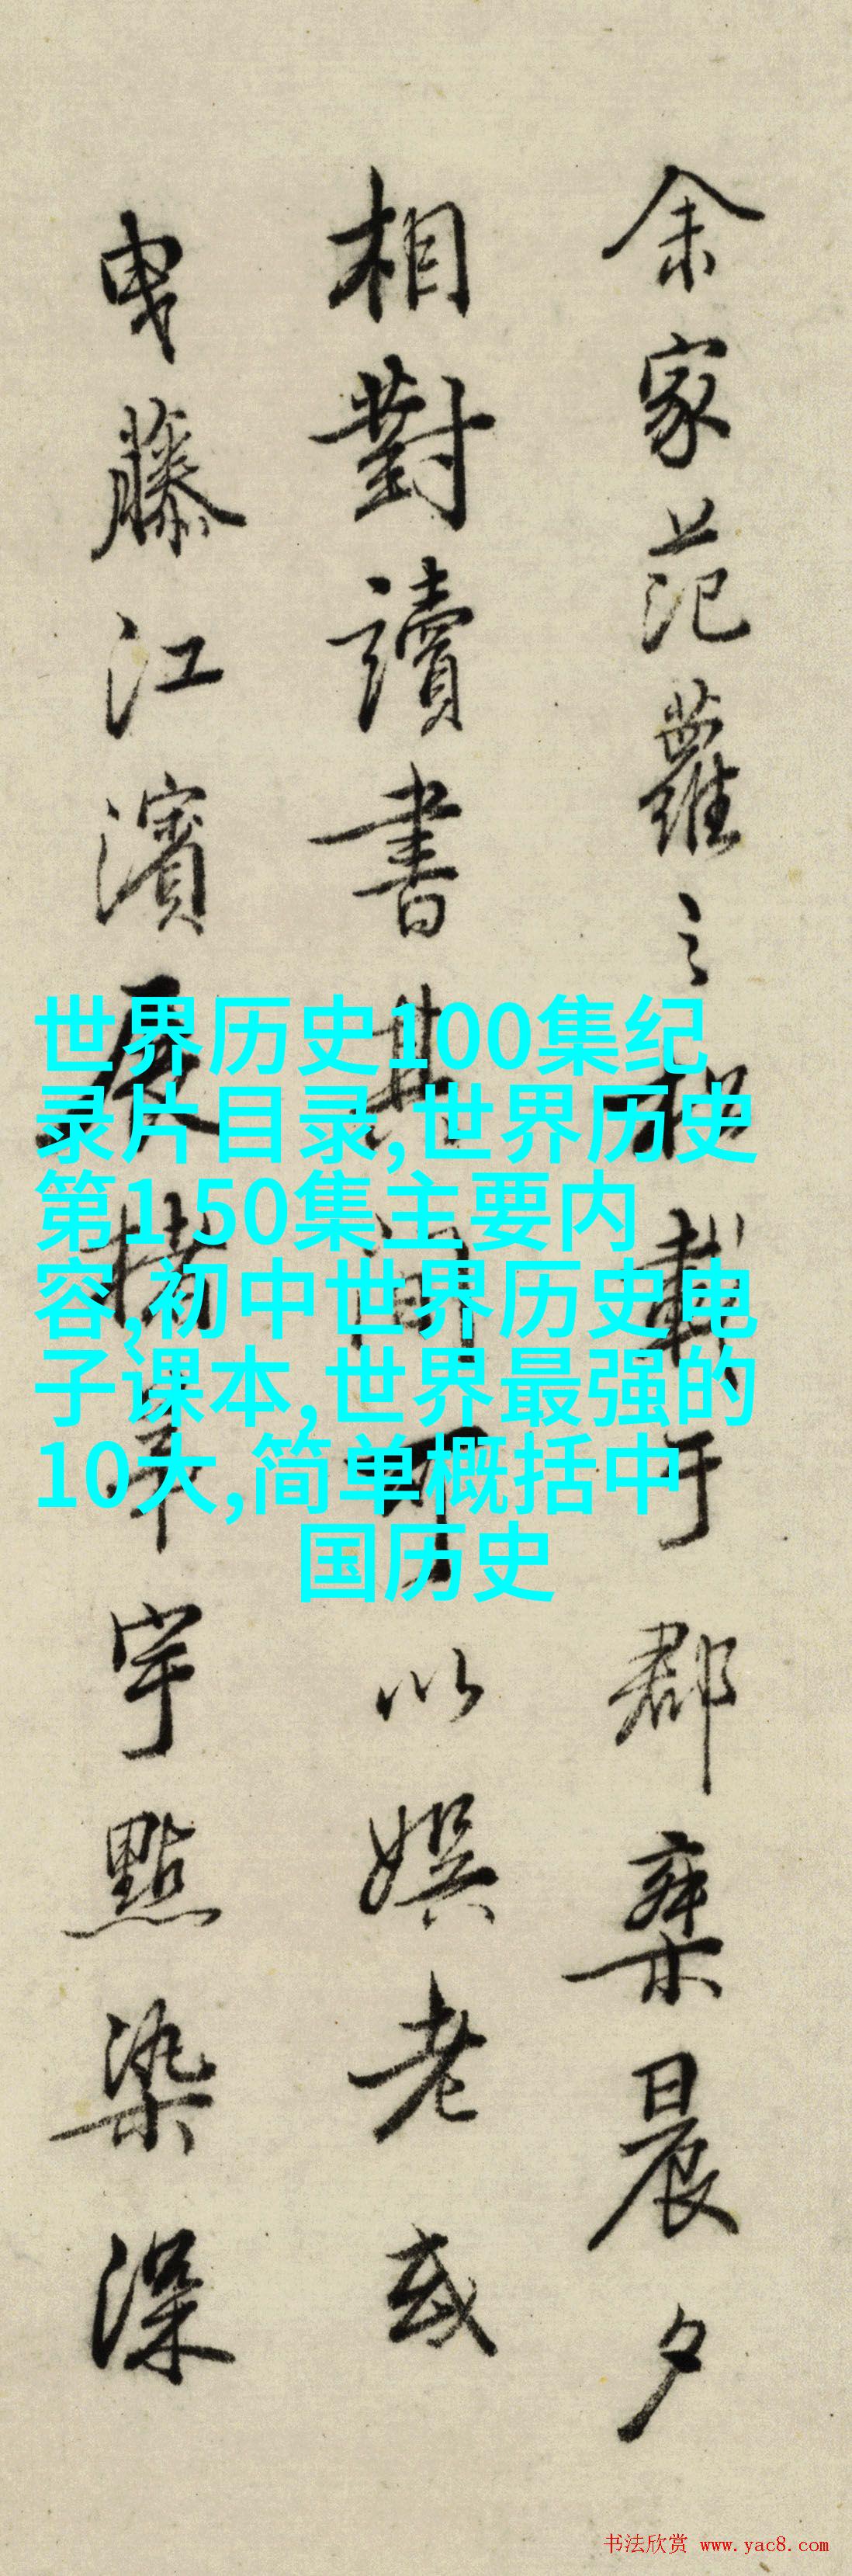 余家范蘿之
載于郡弃晨夕
相對讀書其
以娯老或
曳藤江濱
宇點染深
世界历史100集纪
录片目录,世界历史
第1 50集主要内
容,初中世界历史电
子课本,世界最强的
10大,简单概括中
国历史
书法欣赏 www.yac8.com